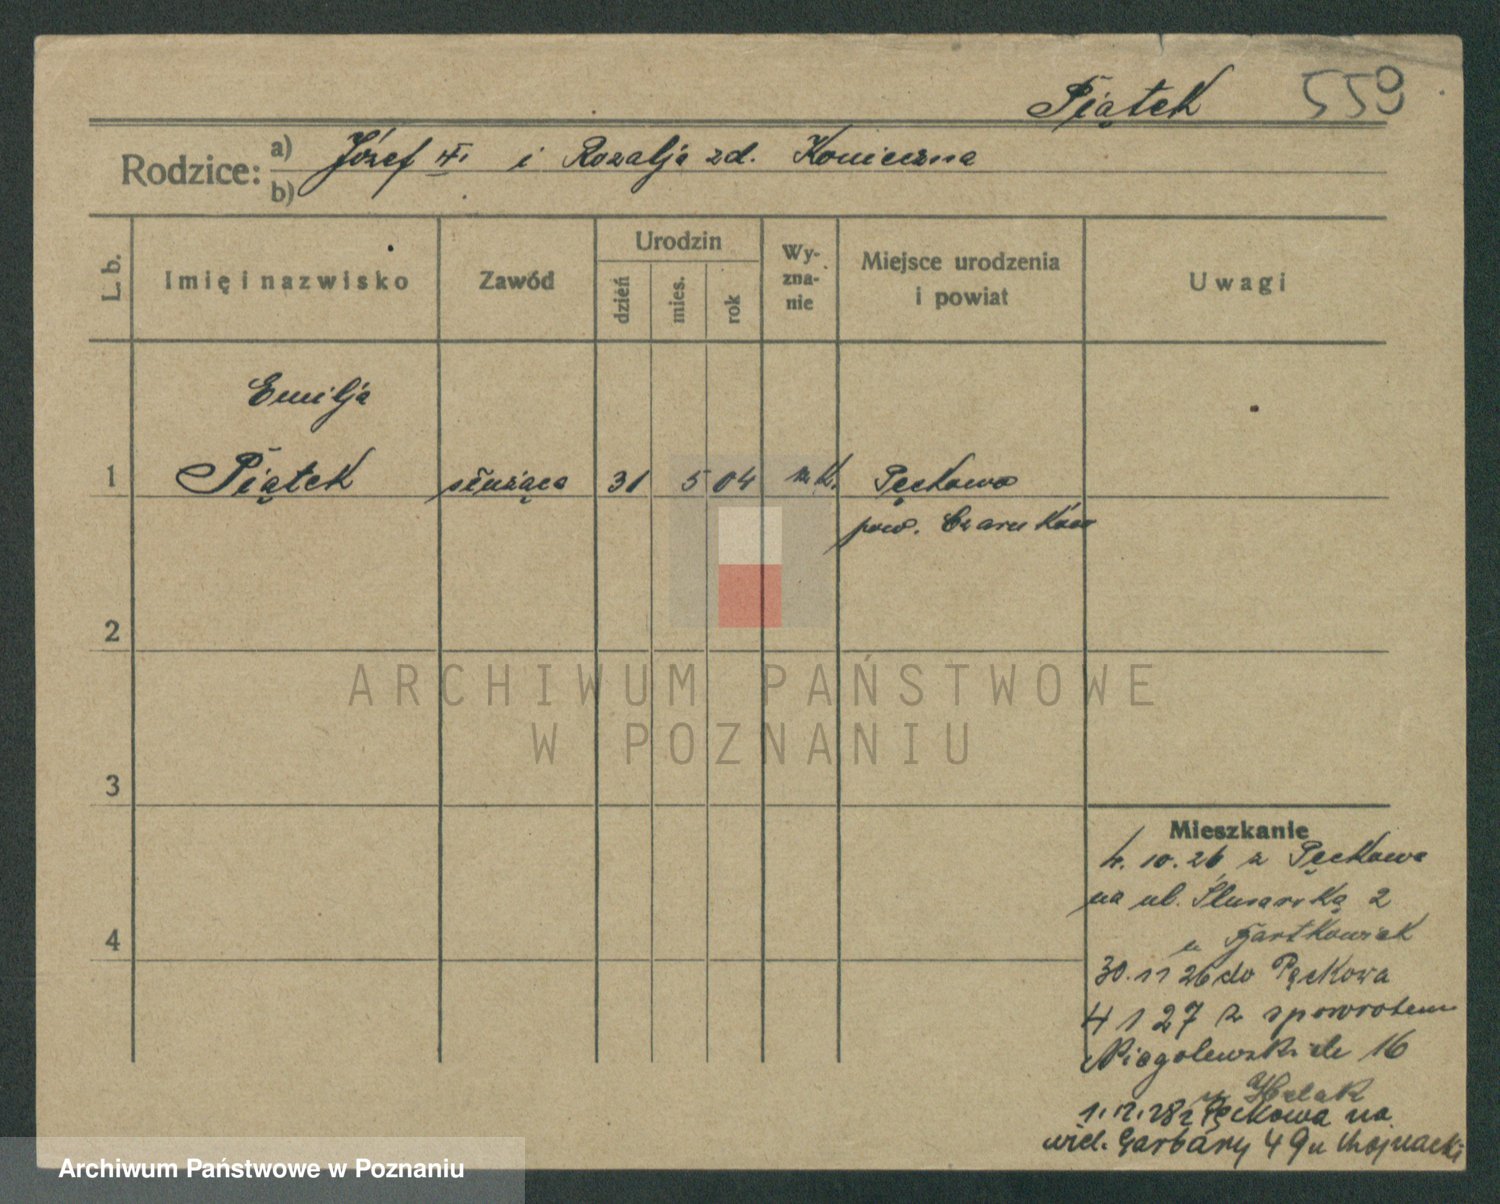 Piątek 559
Rodzice: a) b) Józef i Rozalja zd. Konieczna
L. b.
Imię i nazwisko
Zawód
Urodzin
dzień
mies.
rok
Wy-
zna-
nie
Miejsce urodzenia
i powiat
Uwagi
Emilja
1 Piątek służąca 31 5 04 rz. k. Pęckowo
pow. Czarnków
2
3
4
Mieszkanie
4. 10. 26 z Pęckowa
na ul. Ślusarską 2
u Bartkowiak
30. 11 26 do Pęckowa
4 1 27 z spowrotem
Niegolewskich 16
u
1. 12. 28 z Pęckowa na
wiel. Garbáry 49 u Chojnacki
ARCHIWUM PAŃSTWOWE
W POZNANIU
Archiwum Państwowe w Poznaniu